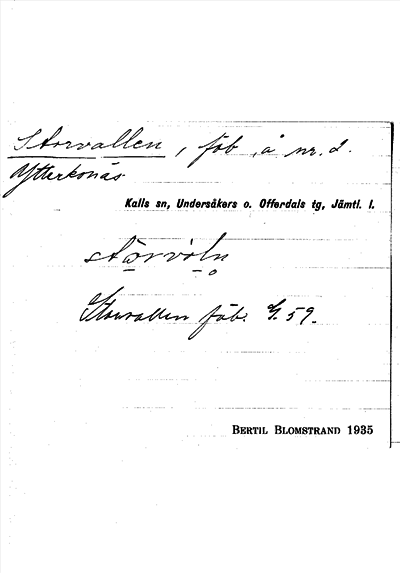 Storvallen, fäb. å nr. 2.
Ytterkonäs
Kalls sn, Undersåkers o. Offerdals tg, Jämtl. l.
stórvòln
Storvallen fäb. G. 59.
BERTIL BLOMSTRAND 1935